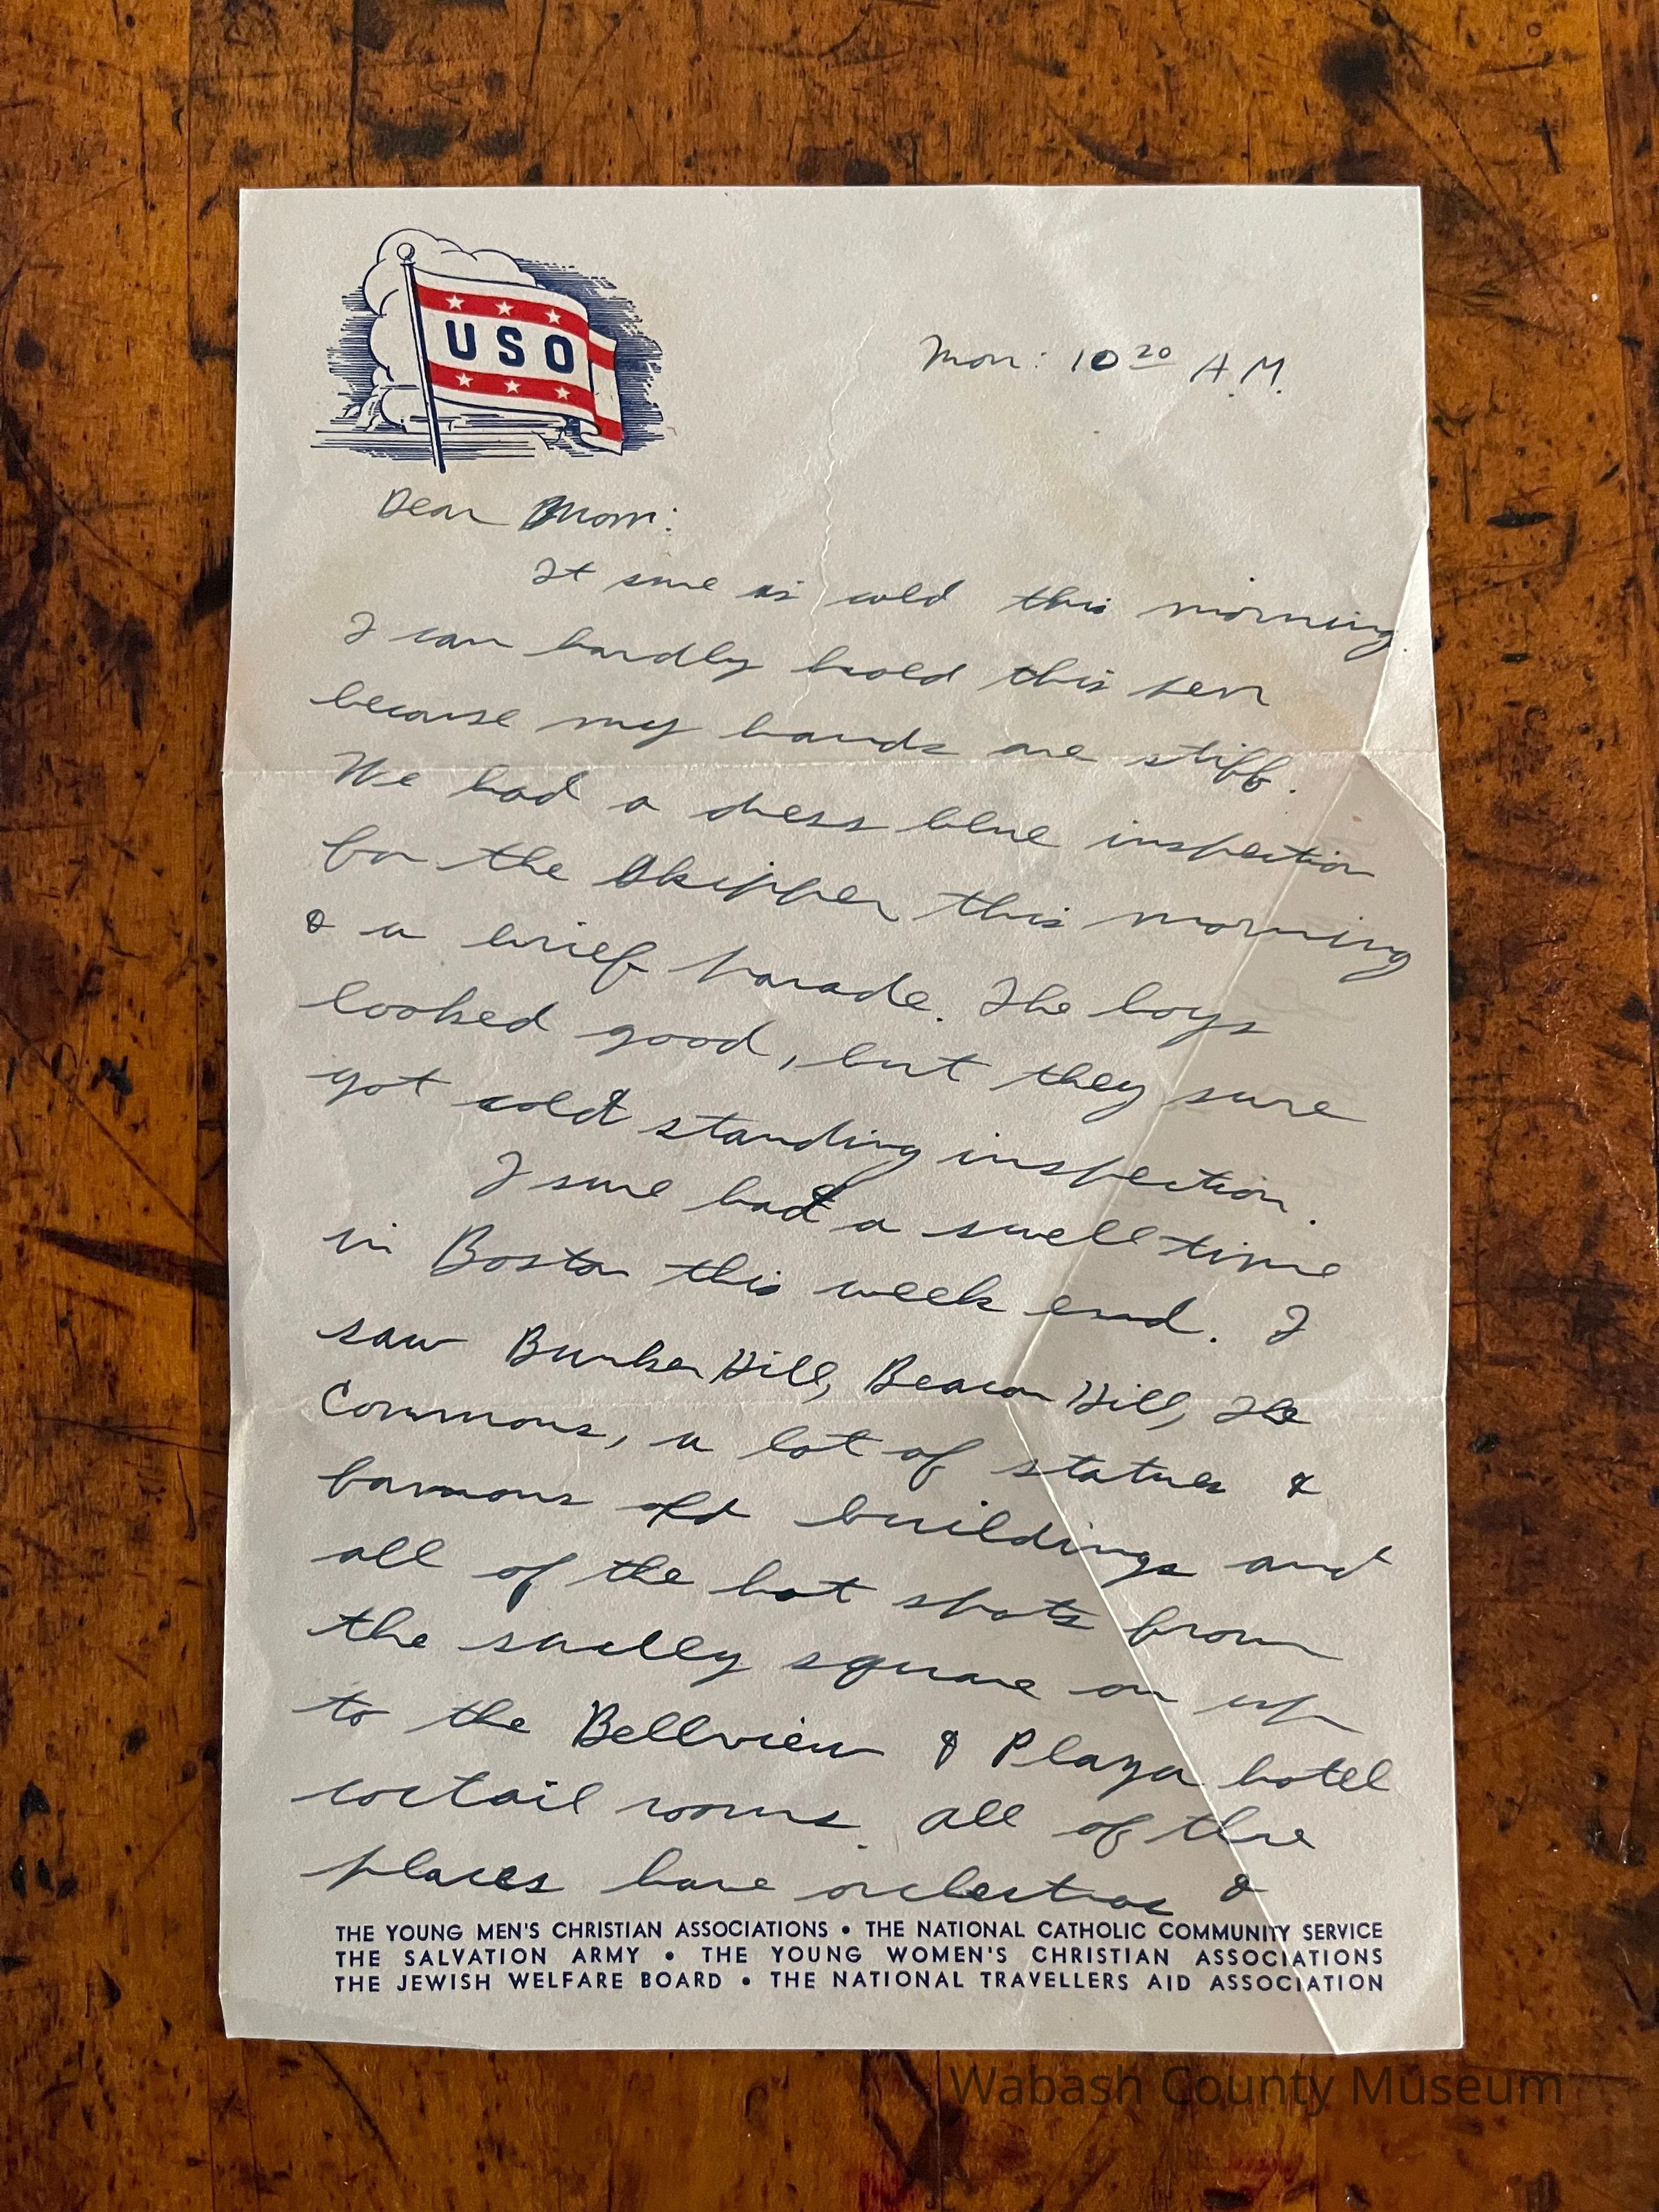 USO
Mon: 10 20 A.M.
Dear Mom:
It sure is cold this morning.
I can hardly hold this pen
because my hands are stiff.
We had a dress blue inspection
for the Skipper this morning
& a brief parade. The boys
looked good, but they sure
got cold standing inspection.
I sure had a swell time
in Boston this week end. I
saw Bunker Hill, Beacon Hill, The
Commons, a lot of statues &
famous old buildings and
all of the hot spots from
the square on up
to the Bellview & Plaza hotel
coctail rooms. All of
places have orchestras &
THE YOUNG MEN'S CHRISTIAN ASSOCIATIONS • THE NATIONAL CATHOLIC COMMUNITY SERVICE
THE SALVATION ARMY • THE YOUNG WOMEN'S CHRISTIAN ASSOCIATIONS
THE JEWISH WELFARE BOARD • THE NATIONAL TRAVELLERS AID ASSOCIATION
Wabash County Museum